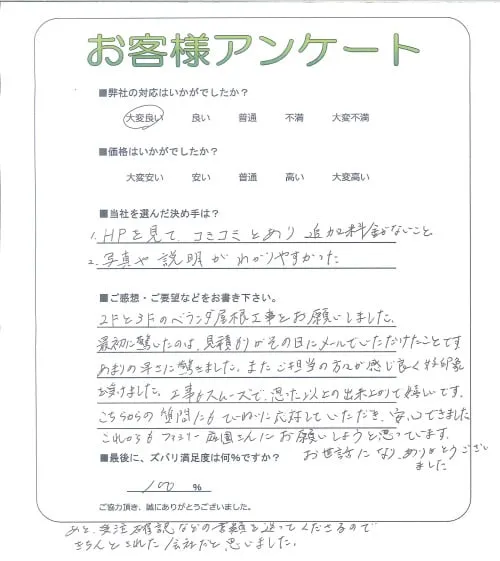 お客様アンケート
■弊社の対応はいかがでしたか？
大変良い 良い 普通 不満 大変不満
■価格はいかがでしたか？
大変安い 安い 普通 高い 大変高い
■当社を選んだ決め手は？
1. HPを見て、コミコミとあり 追加料金がないこと
2. 写真や説明がわかりやすかった
■ご感想・ご要望などをお書き下さい。
2Fと3Fのベランダ屋根工事をお願いしました。
最初に驚いたのは、見積もりがその日にメールでいただけたことです
あまりの早さに驚きました。またご担当の方々が感じ良く好印象
を受けました。工事もスムーズで、思った以上の出来上がりで嬉しいです。
こちらからの質問にもていねいに応対していただき、安心できました
これからもファミリー庭園さんにお願いしようと思っています。
お世話になり、ありがとうござい
ました
■最後に、ズバリ満足度は何％ですか？
100 ％
ご協力頂き、誠にありがとうございました。
あと、受注確認などの書類を送ってくださるので
きちんとされた会社だと思いました。